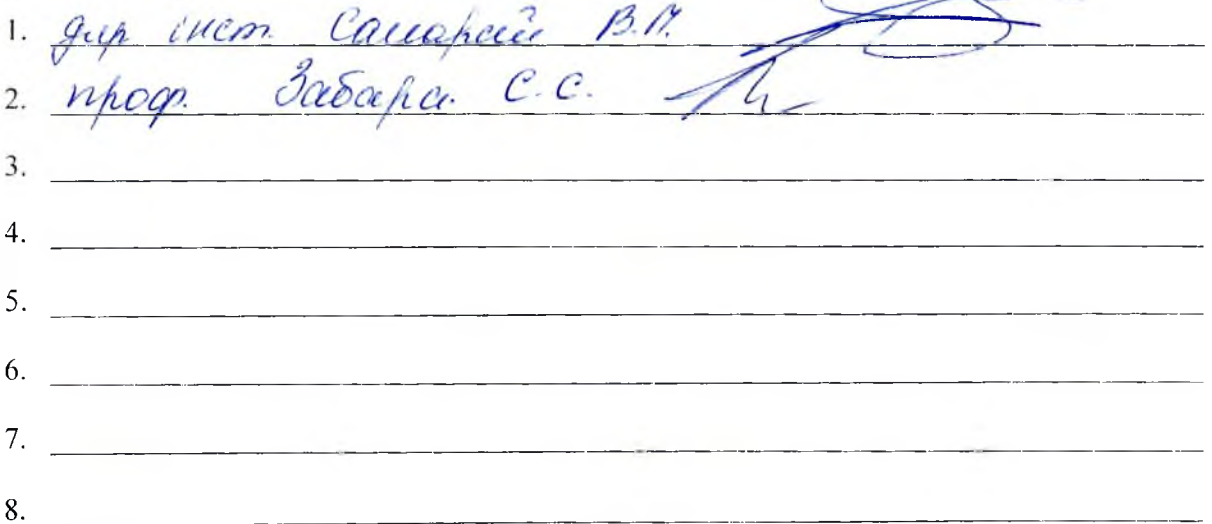 1. дир інст. Самарай В.П.
2. проф. Забара С.С.
3.
4.
5.
6.
7.
8.